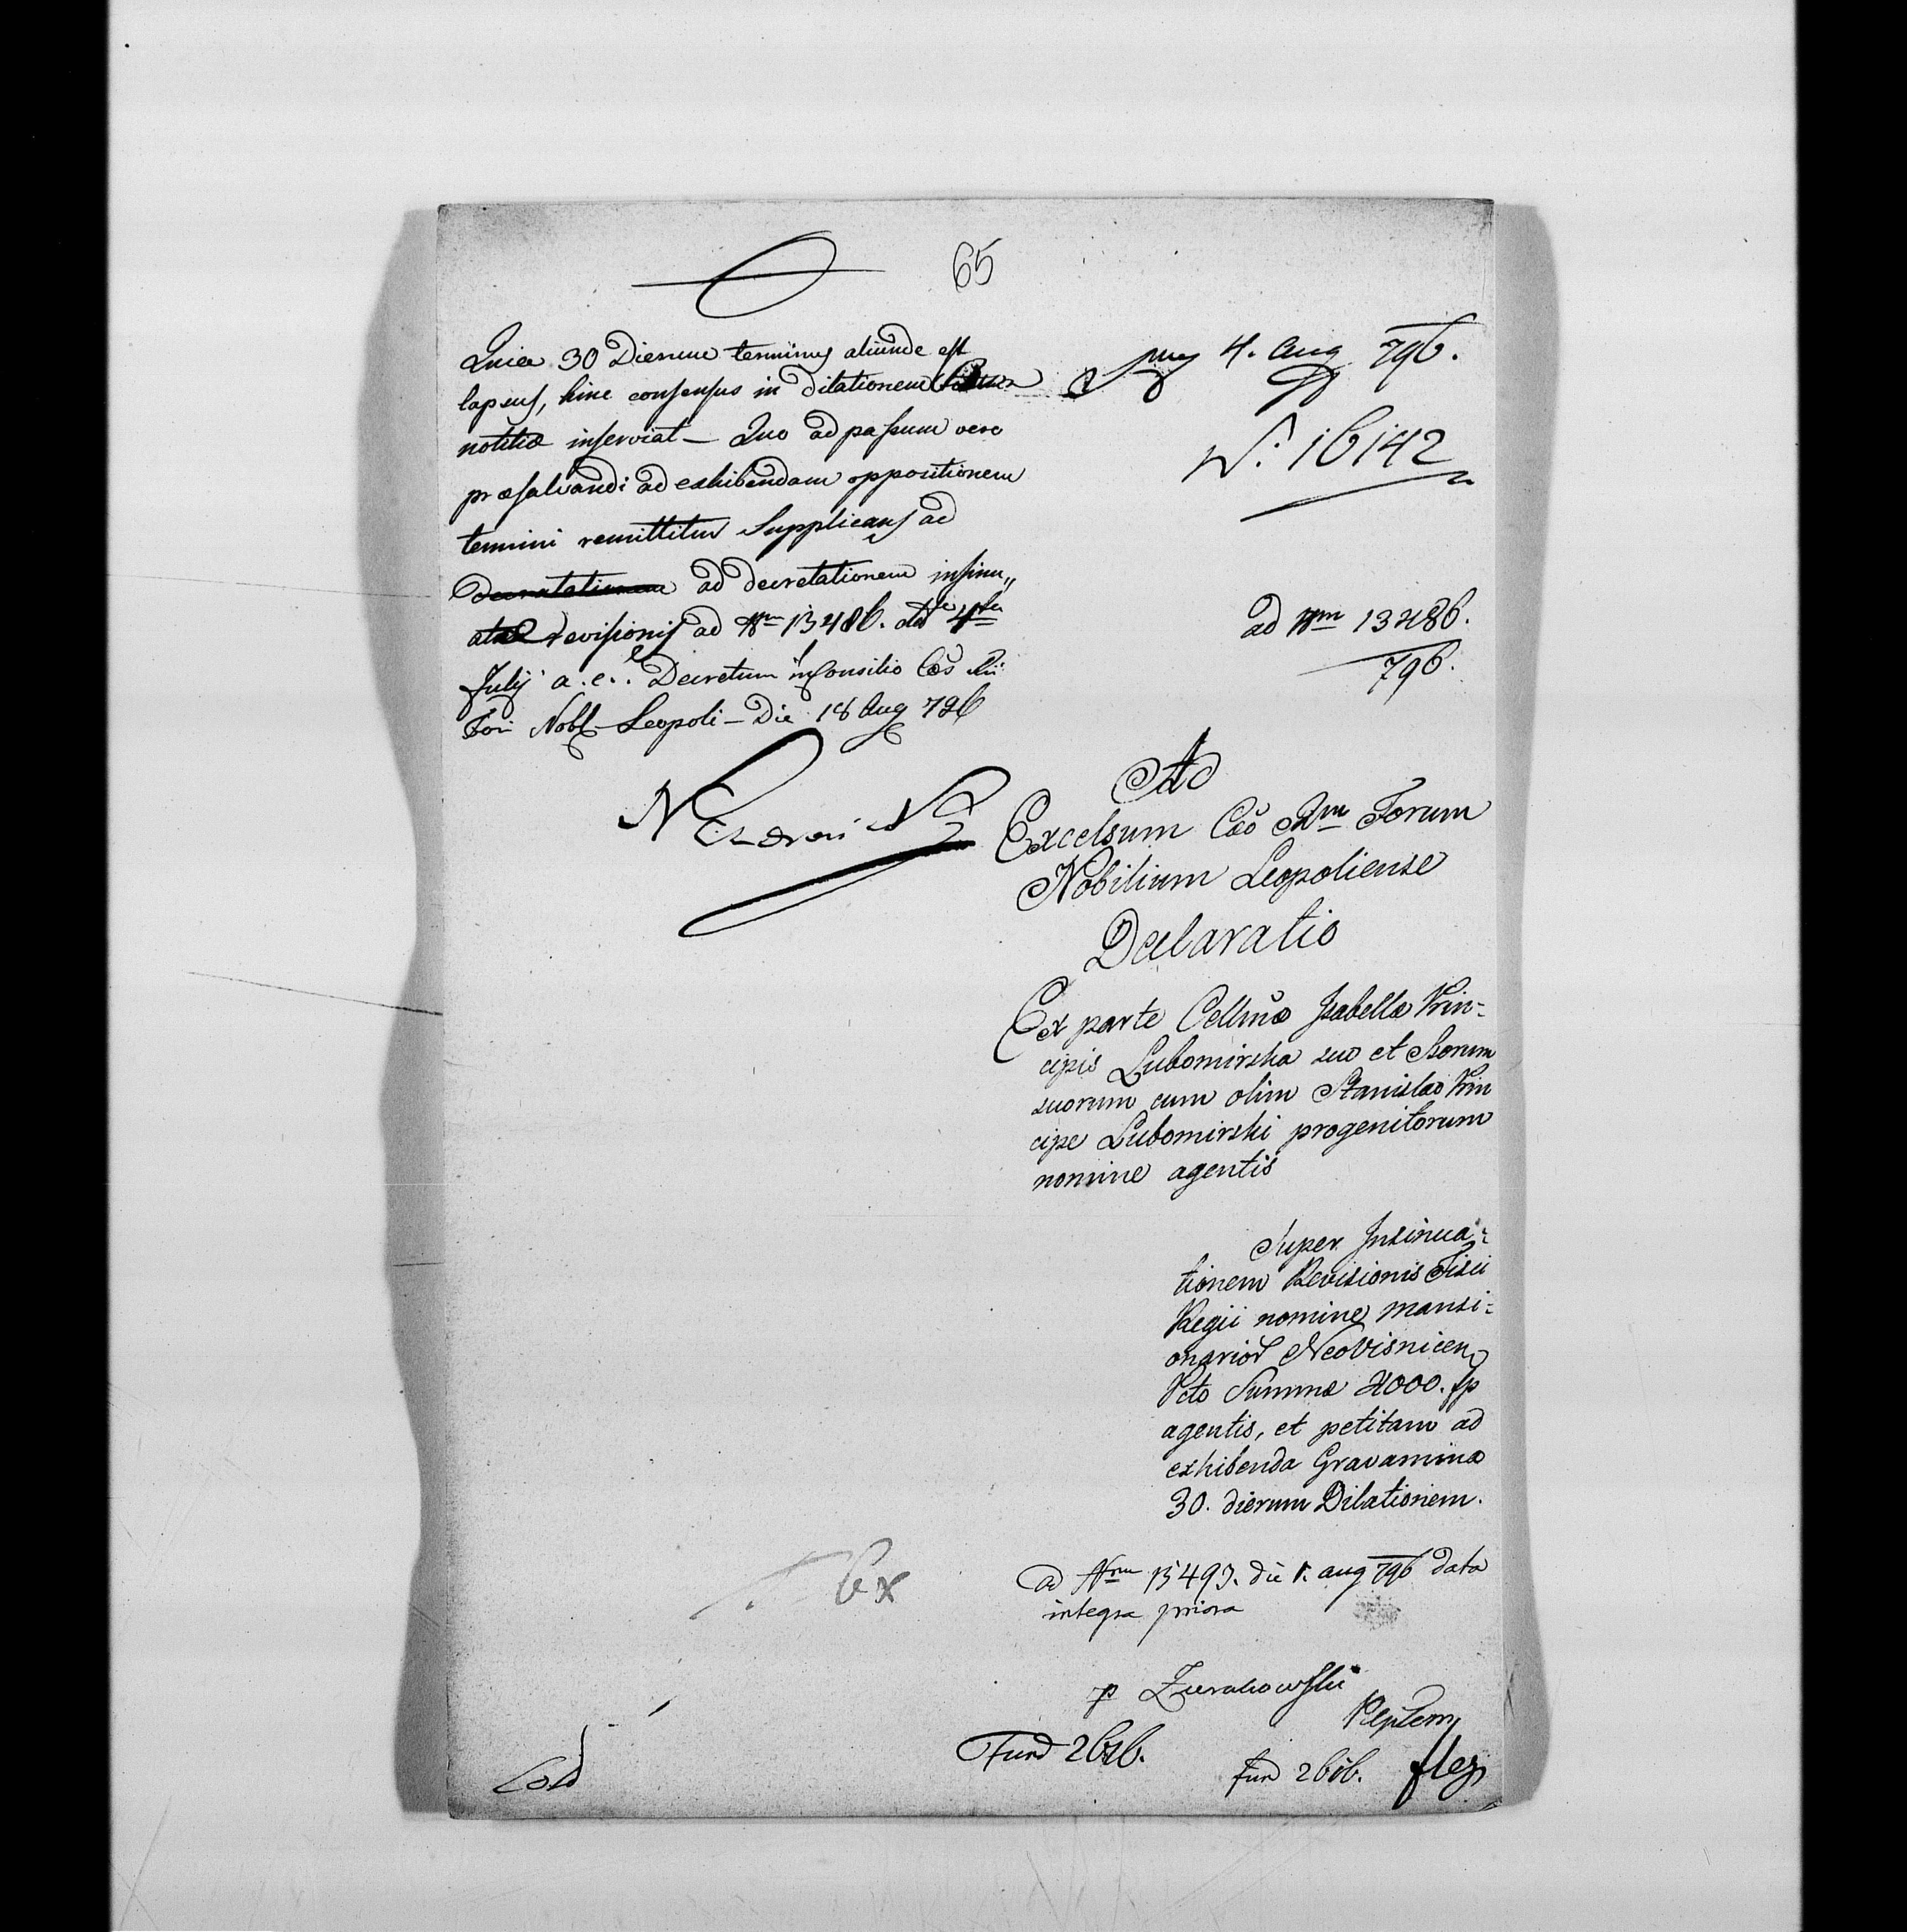 65
Quia 30 Dierum terminus aliunde est
lapsus, hinc consensus in dilationem
notitiæ inserviat — Quo ad passum vero
præsalvandi ad exhibendam oppositionem
termini remittitur Supplicans ad
ad decretationem insinu„
atæ revisionis ad Nrm 13486. de 4ta
July a. c. Decretum in Consilio Cæs Rii
Fori Nobl. Leopoli — Die 18 Aug 796
4. Aug 796.
N: 16142
ad Nrm 13486.
796.
Ad
Excelsum Cæo Rm Forum
Nobilium Leopoliense
Declaratio
Ex parte Cellmæ Isabellæ Prin-
cipis Lubomirska suo et Sborum
suorum cum olim Stanislao Prin
cipe Lubomirski progenitorum
nomine agentis
Super Insinua-
tionem Revisionis Fisci
Regii nomine mansi-
onarior Neovisnicen
Pcto Summæ 2000. fp
agentis, et petitam ad
exhibenda Gravamina
30. dierum Dilationem.
ad Nrm 15493. die 1. aug 796 data
integra priora
p Zurakowski
Fund 2616.
fund 2616.